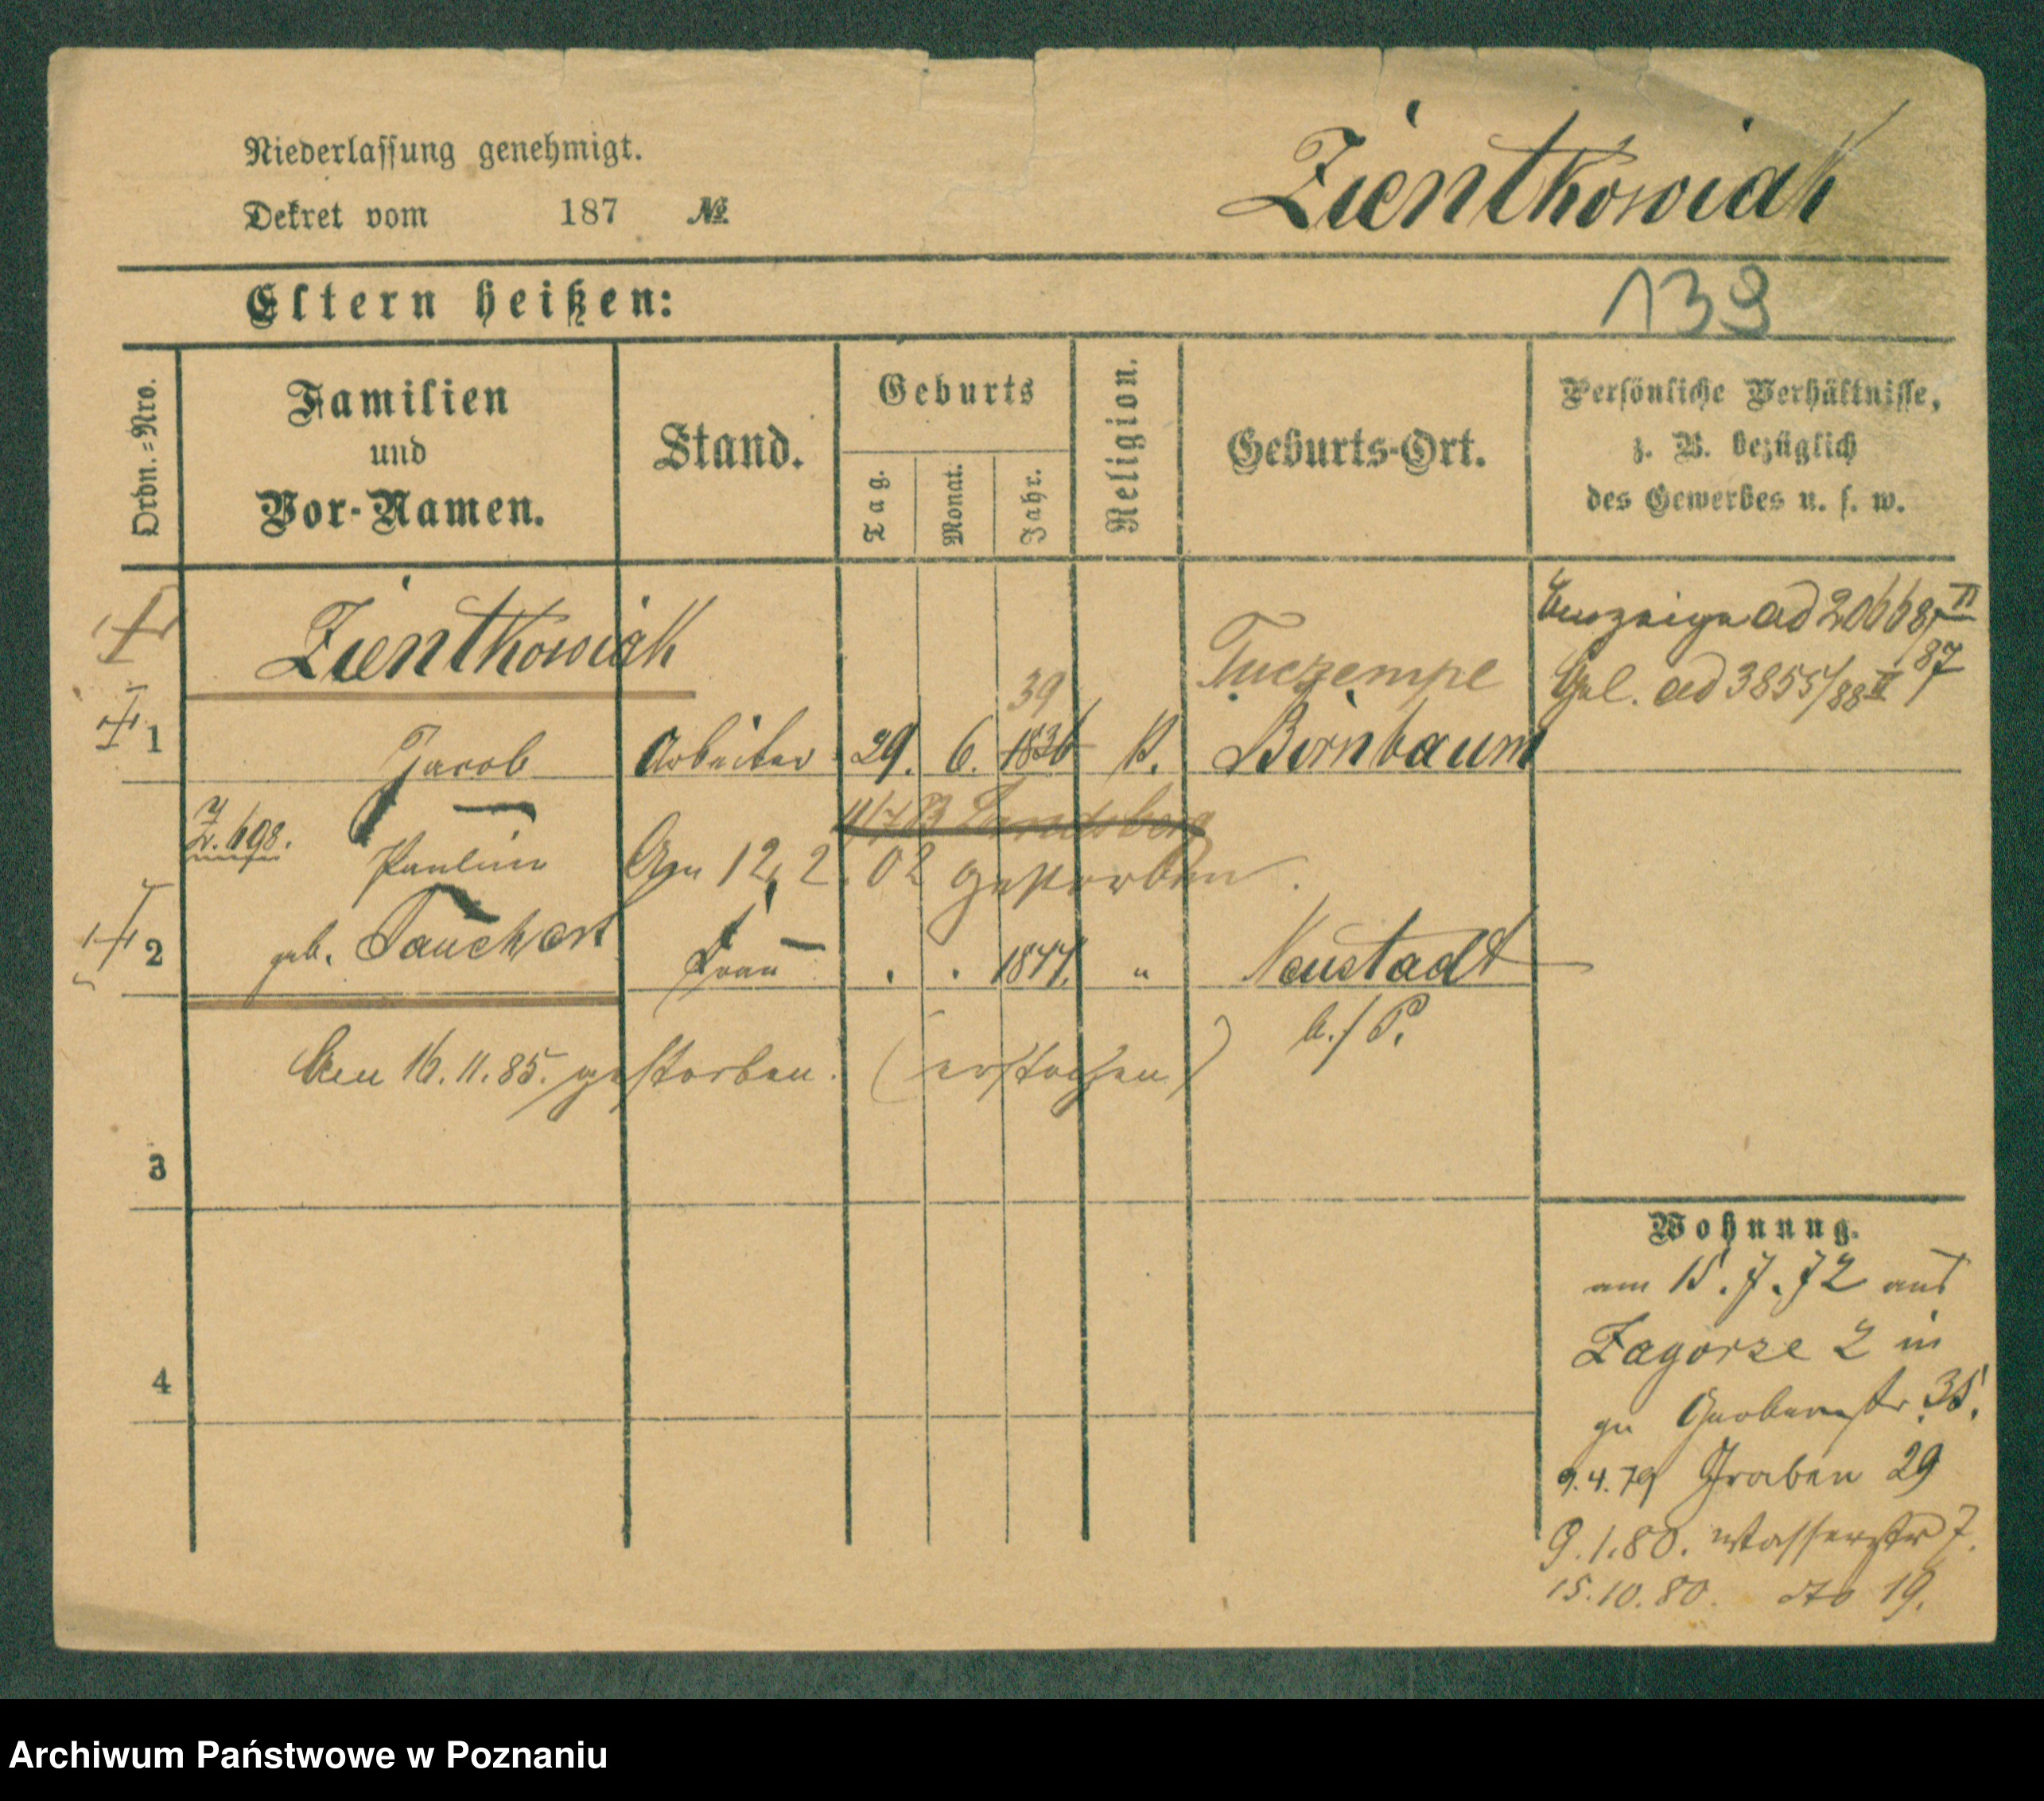 Niederlassung genehmigt.
Dekret vom 187 №
Zientkowiak
Eltern heißen:
139
Ordn.=Nro.
Familien
und
Vor-Namen.
Stand.
Geburts
Tag.
Monat.
Jahr.
Religion.
Geburts-Ort.
Persönliche Verhältnisse,
z. B. bezüglich
des Gewerbes u. s. w.
Zientkowiak
Tuczempe
ad 20668 II/87
ad 3855/88 II
39
1 Jacob Arbeiter 29. 6. 1836 k. Birnbaum
11/7 83 Landsberg
Z. 698.
Pauline
Am 12. 2. 02 gestorben.
2 geb. Tauchert Frau . . 1844. " Neustadt
b./P.
Am 16. 11. 85. gestorben. (erstochen)
3
4
Wohnung.
am 15. 7. 72 aus
Zagorze 2 in
zu Gerberstr. 35.
9. 4. 79 Graben 29
9. 1. 80. Wasserstr 7.
15. 10. 80. dto 19.
Archiwum Państwowe w Poznaniu